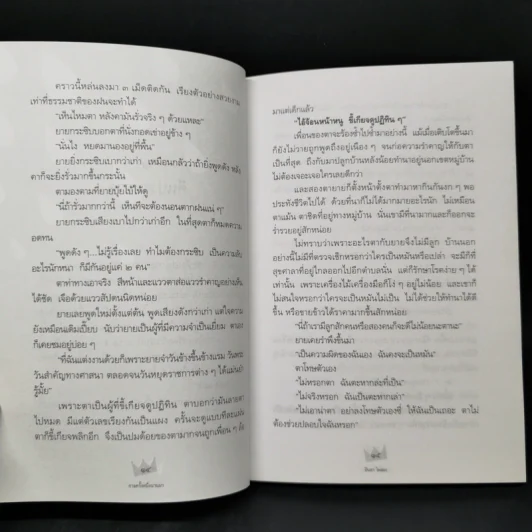 คราวนี้หล่นลงมา ๓ เม็ดติดกัน เรียงตัวอย่างสวยงาม
เท่าที่ธรรมชาติของฝนจะทำได้
"เห็นไหมตา หลังคามันรั่วจริง ๆ ด้วยแหละ"
ยายกระซิบบอกตาที่นั่งกอดเข่าอยู่ข้าง ๆ
"นั่นไง หยดมานองอยู่ที่พื้น"
ยายยิงกระซิบเบากว่าเก่า เหมือนกลัวว่าถ้ายิ่งพูดดัง หลัง
คาก็จะยิ่งรั่วมากขึ้นกระนั้น
ตามองตามที่ยายบุ้ยใบ้ให้ดู
"นี่ถ้ารั่วมากกว่านี้ เห็นทีจะต้องนอนตากฝนแน่ ๆ"
ยายกระซิบเสียงเบาไปกว่าเก่าอีก ในที่สุดตาก็หมดความ
อดทน
"พูดดัง ๆ...ไม่รู้เรื่องเลย ทำไมต้องกระซิบ เป็นความลับ
อะไรนักหนา ก็มีกันอยู่แค่ ๒ คน"
ตาทำท่าทางเอาจริง สีหน้าและแววตาส่อแววรำคาญอย่างเห็น
ได้ชัด เจือด้วยแววสัปดนนิดหน่อย
ยายเลยพูดใหม่ตั้งแต่ต้น พูดเสียงดังกว่าเก่า แต่ใจความ
ยังเหมือนเดิมเปี๊ยบ นับว่ายายเป็นผู้ที่มีความจำเป็นเยี่ยม ตาเอง
ก็เคยชมอยู่บ่อย ๆ
"ที่ฉันแต่งงานด้วยก็เพราะยายจำวันข้างขึ้นข้างแรม วันพระ
วันสำคัญทางศาสนา ตลอดจนวันหยุดราชการต่าง ๆ ได้แม่นยำ
รู้มั้ย"
เพราะตาเป็นผู้ที่ขี้เกียจดูปฏิทิน ตาบอกว่ามันลายตา
ไปหมด มีแต่ตัวเลขเรียงกันเป็นแผง ครั้นจะดูแบบทีละแผ่น
ตาก็ขี้เกียจพลิกอีก จึงเป็นปมด้อยของตามากจนถูกเพื่อน ๆ ล้อ
๑๘
มาแต่เด็กแล้ว
"ไอ้จ้อนหน้าหนู ขี้เกียจดูปฏิทิน ๆ"
เพื่อนของตาจะร้องซ้ำไปซ้ำมาอย่างนี้ แม้เมื่อเติบโตขึ้นมา
ก็ยังไม่วายถูกพูดถึงอยู่เนือง ๆ จนก่อความรำคาญให้กับตา
เป็นที่สุด ถึงกับมาปลูกบ้านหลังน้อยทำนาอยู่นอกเขตหมู่บ้าน
ไม่ต้องเจอะเจอใครเลยดีกว่า
และสองตายายก็ตั้งหน้าตั้งตาทำมาหากินกันงก ๆ พอ
ประทังชีวิตไปได้ ด้วยที่นาก็ไม่ได้มากมายอะไรนัก ไม่เหมือน
ตาแม้น ตาชิตที่อยู่ทางหมู่บ้าน นั่นเขามีที่นามากและก็ออกจะ
ร่ำรวยอยู่สักหน่อย
ไม่ทราบว่าเพราะอะไรตากับยายจึงไม่มีลูก บ้านนอก
อย่างนี้ไม่มีที่ตรวจเช็กหรอกว่าใครเป็นหมันหรือเปล่า จะมีก็ที่
สุขศาลาที่อยู่ไกลออกไปอีกตำบลนั่น แต่ก็รักษาโรคง่าย ๆ ได้
เท่านั้น เพราะเครื่องไม้เครื่องมือก็โง่ ๆ อยู่ไม่น้อย และเขาก็
ไม่สนใจหรอกว่าใครจะเป็นหมันไม่เป็น ไม่ได้ช่วยให้ทำนาได้ดี
ขึ้น หรือขายข้าวได้ราคามากขึ้นสักหน่อย
"นี่ถ้าเรามีลูกสักคนหรือสองคนก็จะดีไม่น้อยนะตานะ"
ยายเคยรำพึงขึ้นมา
"เป็นความผิดของฉันเอง ฉันคงจะเป็นหมัน"
ตาโทษตัวเอง
"ไม่หรอกตา ฉันตะหากล่ะที่เป็น"
"ไม่จริงหรอก ฉันเป็นตะหากเล่า"
"ไม่เอาน่าตา อย่าลงโทษตัวเองซี่ ให้ฉันเป็นเถอะ ตาไม่
ต้องช่วยปลอบใจฉันหรอก"
๑๙